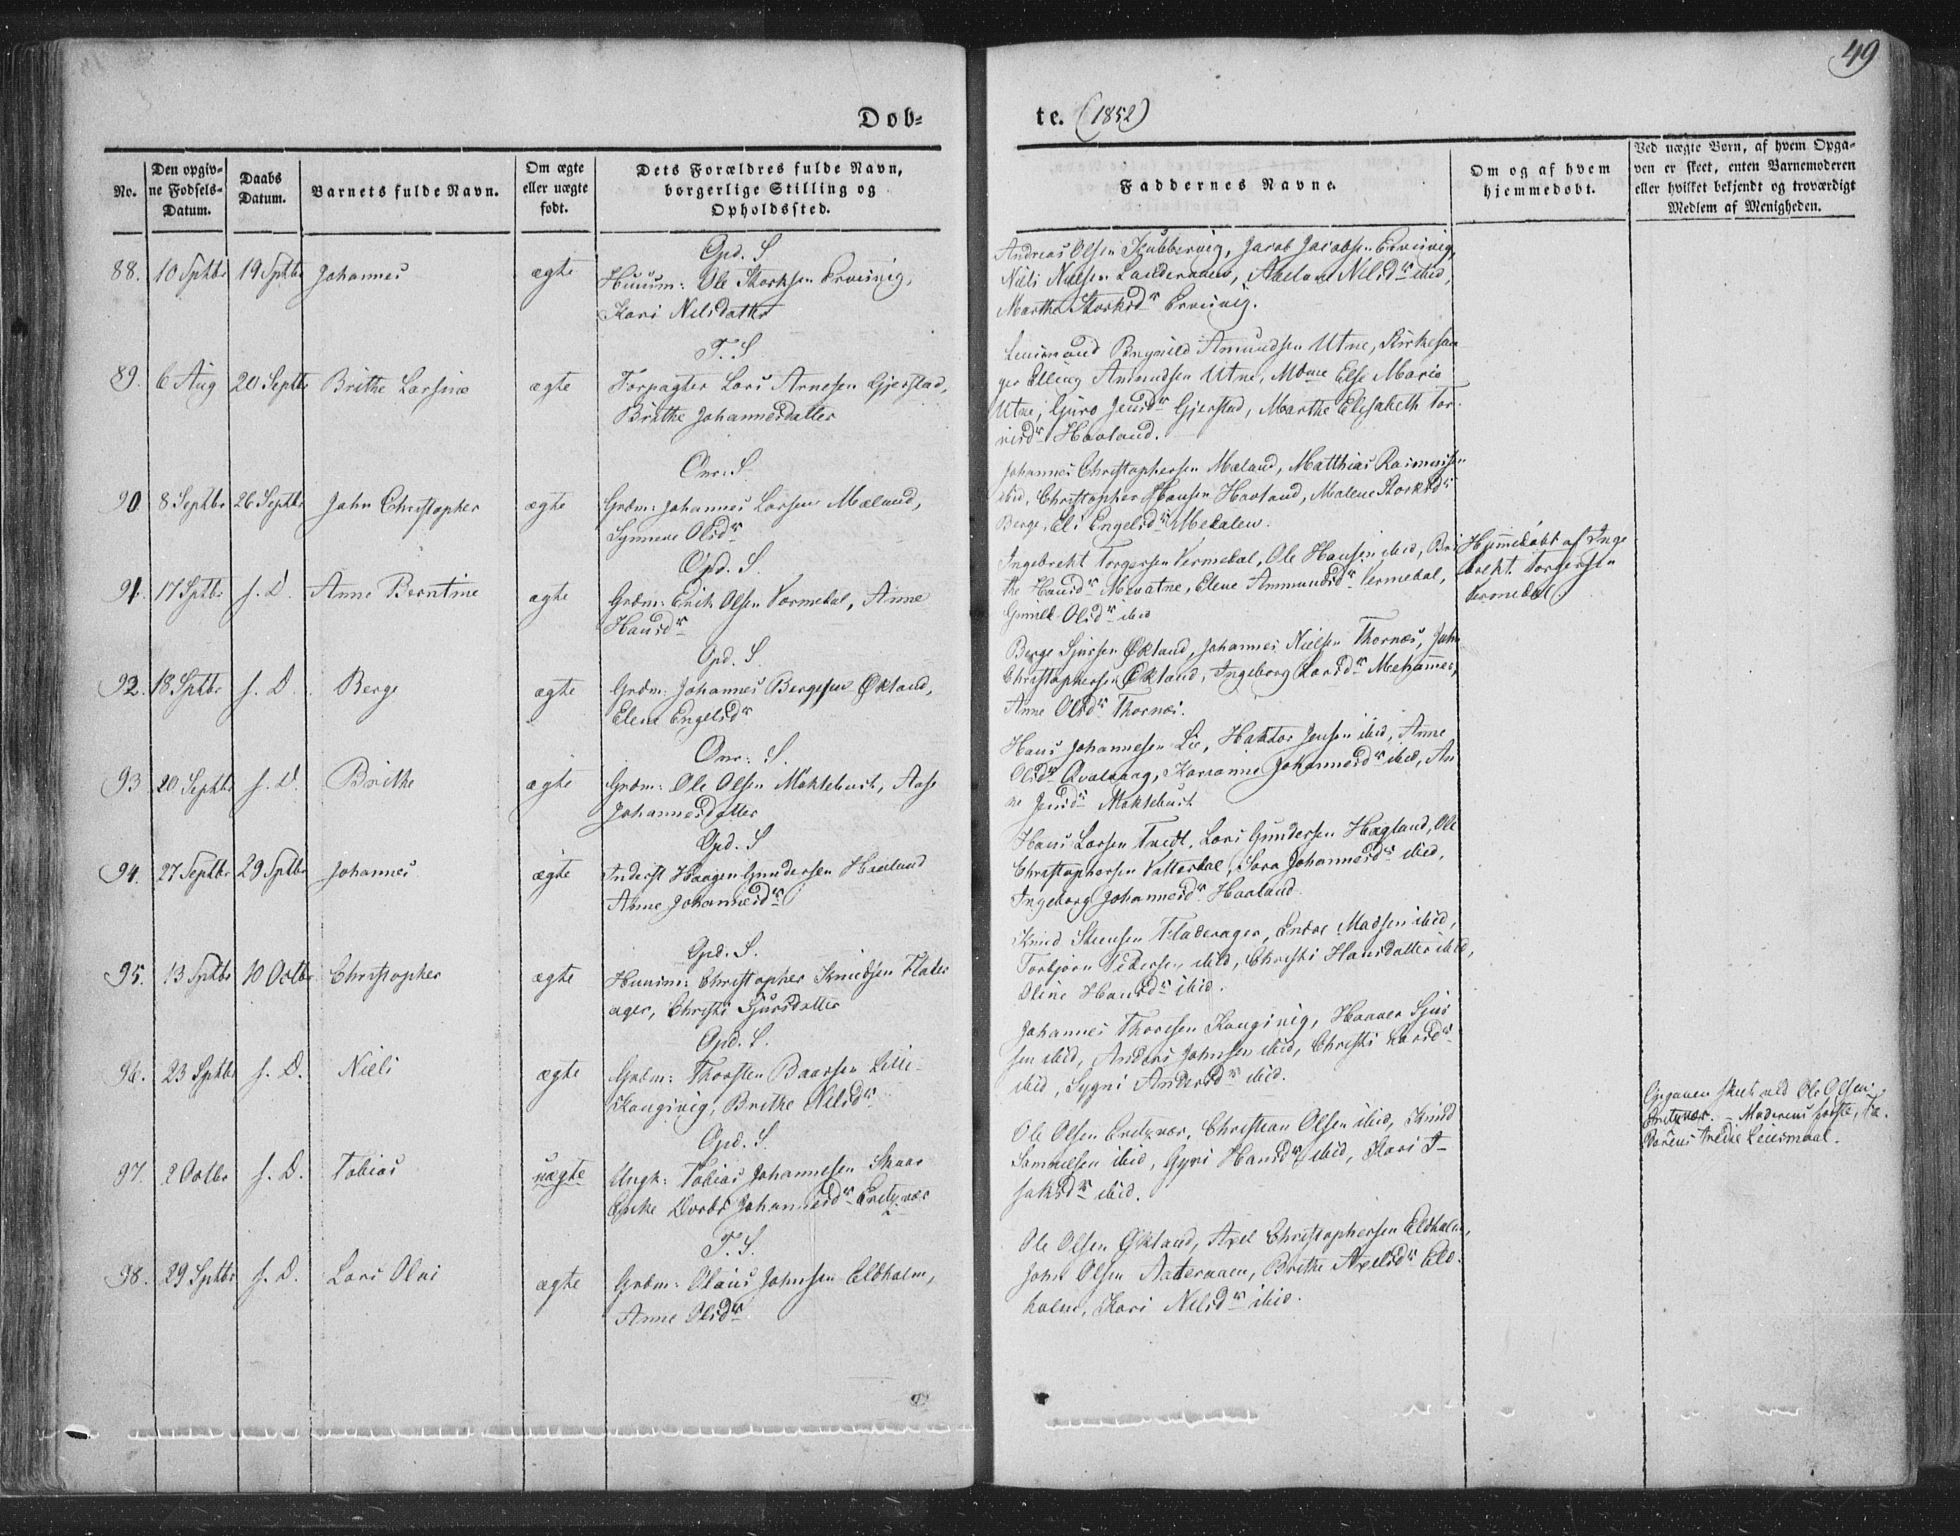 49
Døb-
te. (1852)
No.
Den opgiv-
ne Fødsels-
Datum.
Daabs
Datum.
Barnets fulde Navn.
Om ægte
eller uægte
født.
Dets Forældres fulde Navn,
borgerlige Stilling og
Opholdssted.
Faddernes Navne.
Om og af hvem
hjemmedøbt.
Ved uægte Børn, af hvem Opga-
ven er skeet, enten Barnemoderen
eller hvilket bekjendt og troværdigt
Medlem af Menigheden.
Opd. S
88. 10 Sptbr 19 Sptbr Johannes ægte Huusm: Ole Storksen
Kari Nilsdatter
Andreas Olsen Skubbervig, Jacob Jacobsen
Niels Nielsen Nilsdr ibid,
Marthe Storksdr
T. S
89. 6 Aug 20 Septbr Brithe Larsine ægte Forpagter Lars Arnesen Gjerstad,
Brithe Johannesdatter
Amundsen Utne, Kirkesan
ger Elling Amundsen Utne, Mdme Else Maria
Utne, Guro Jensdr Gjerstad, Marthe Elisabeth Tor-
Haaland.
Onr: S.
90. 8 Septbr 26 Septbr John Christopher ægte Grdm: Johannes Larsen Mæland,
Synneve Olsdr
Johannes Christophersen Mæland, Matthias Rasmussen
ibid, Christopher Hansen Havland, Malene Storksdr
Berge, Eli Engelsdr
Opd. S.
91. 17 Sptbr s. D. Anne Berntine ægte Grdm: Erik Olsen Vormedal, Anne
Hansdr
Ingebrekt Torgersen Vermedal, Ole Hansen ibid, Bri
the Hansdr Mevatne, Elene Ammundsdr Vermedal,
Gunild Olsdr ibid
Hjemmedøbt af Inge
brekt Torgersen
Vermedal.
Opd. S.
92. 18 Sptbr s. D. Berge ægte Grdm: Johannes Bergesen Økland,
Elene Engelsdr
Berge Sjursen Økland, Johannes Nielsen Thornæs, John
Christophersen Økland, Ingeborg Larsdr
Anne Olsdr Thornæs.
Onr: S.
93 20 Septbr s. D. Brithe ægte Grdm: Ole Olsen Møklebust, Aase
Johannesdatter
Hans Johannesen Lie, Haktor Jensen ibid, Anne
Olsdr Qvalvaag, Karianne Johannesdr ibid, An
ne Jensdr Møklebust
Opd. S
94. 27 Septbr 29 Sptbr Johannes ægte Inderst Haagen Gundersen Haaland
Anne Johannesdr
Hans Larsen Tvedt, Lars Gundersen Hægland, Ole
Christophersen Vatterdal, Sara Johannesdr ibid,
Ingeborg Johannesdr Haaland
Opd. S.
95. 13 Sptbr 10 Octbr Christopher ægte Huusm: Christopher Knudsen Flader
ager, Christi Sjursdatter
Knud Steensen Fladerager, Endre Madsen ibid,
Torbjørn Pedersen ibid, Christi Hansdatter ibid,
Oline Hansdr ibid.
Opd. S.
96. 23 Sptbr s. D. Niels ægte Grdm: Thorsten Baarsen Lille-
Kongsvig, Brithe Nilsdr
Johannes Thoresen Kongsvig, Haaver Sjur
sen ibid, Anders Johnsen ibid, Christi Larsdr
ibid, Sygni Andersdr ibid.
Opd. S.
97. 2 Octbr s. D. Tobias uægte Ungk: Tobias Johannesen Skaar
Enke Dorte Johannesdr Eritzvær
Ole Olsen Eritzvær, Christian Olsen ibid, Knud
Samuelsen ibid, Gyri Hansdr ibid, Kari I-
saksdr ibid.
Opgaven skeet ved Ole Olsen
Eritzvær. – Moderens første, Fa-
derens tredie Leiermaal.
T. S.
98. 29 Sptbr s. D. Lars Olai ægte Grdm: Olaus Johnsen Eldholm,
Anne Olsdr
Ole Olsen Økland, Axel Christophersen Eldholm,
John Olsen Brithe Axelsdr Eld-
holm, Kari Nilsdr ibid.